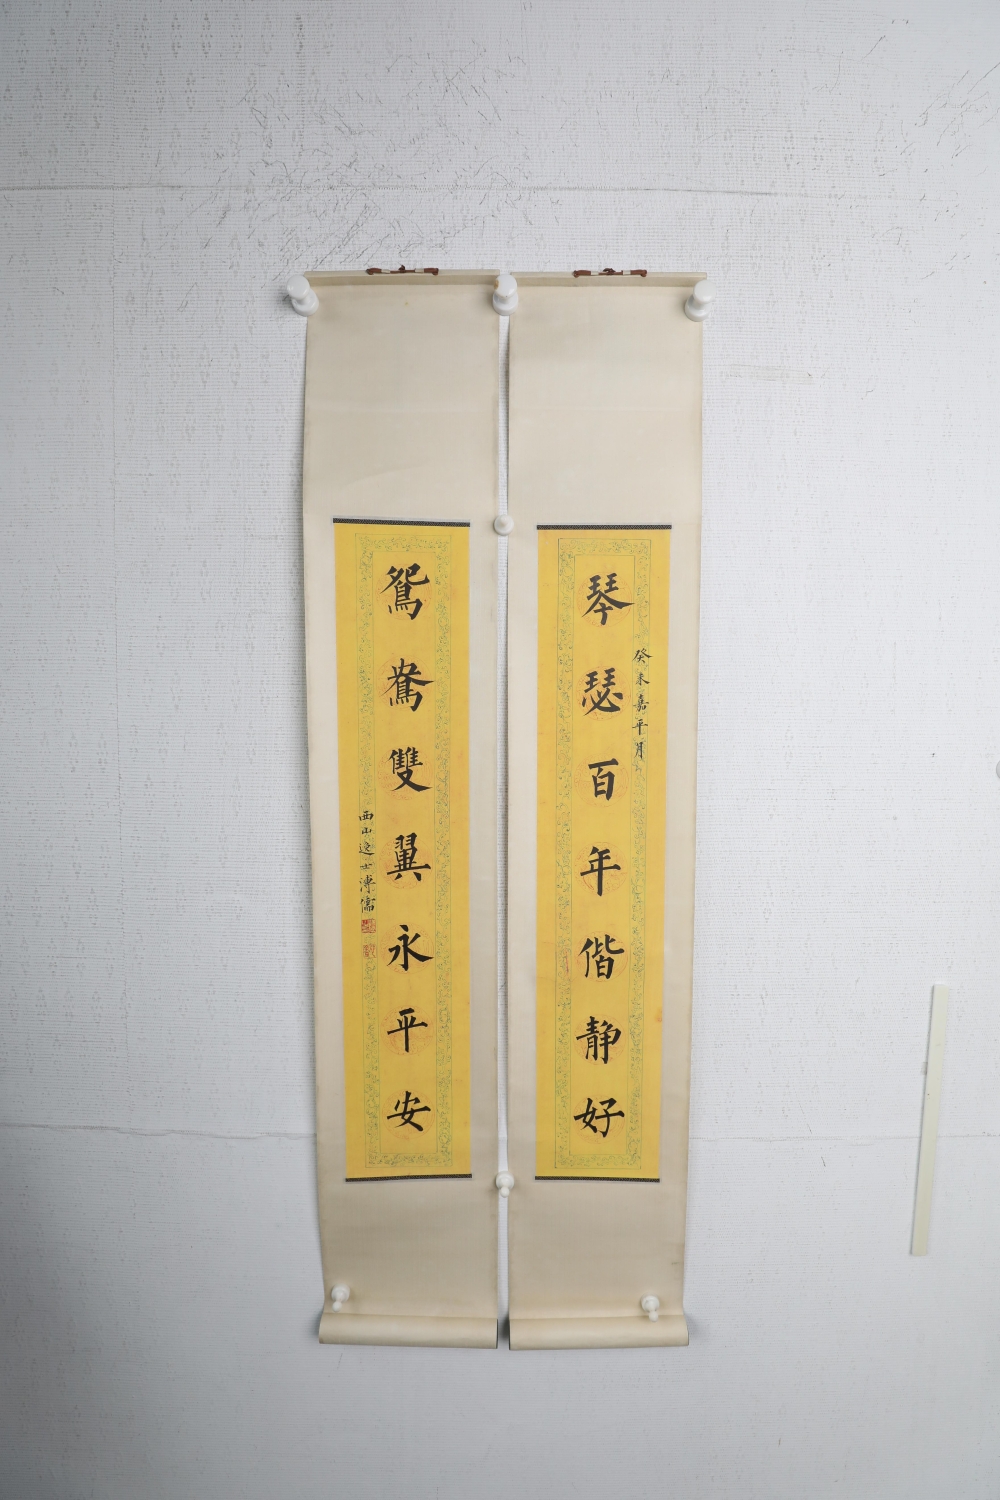 琴瑟百年偕静好
癸未嘉平月
鴛鴦雙翼永平安
西山逸士溥儒